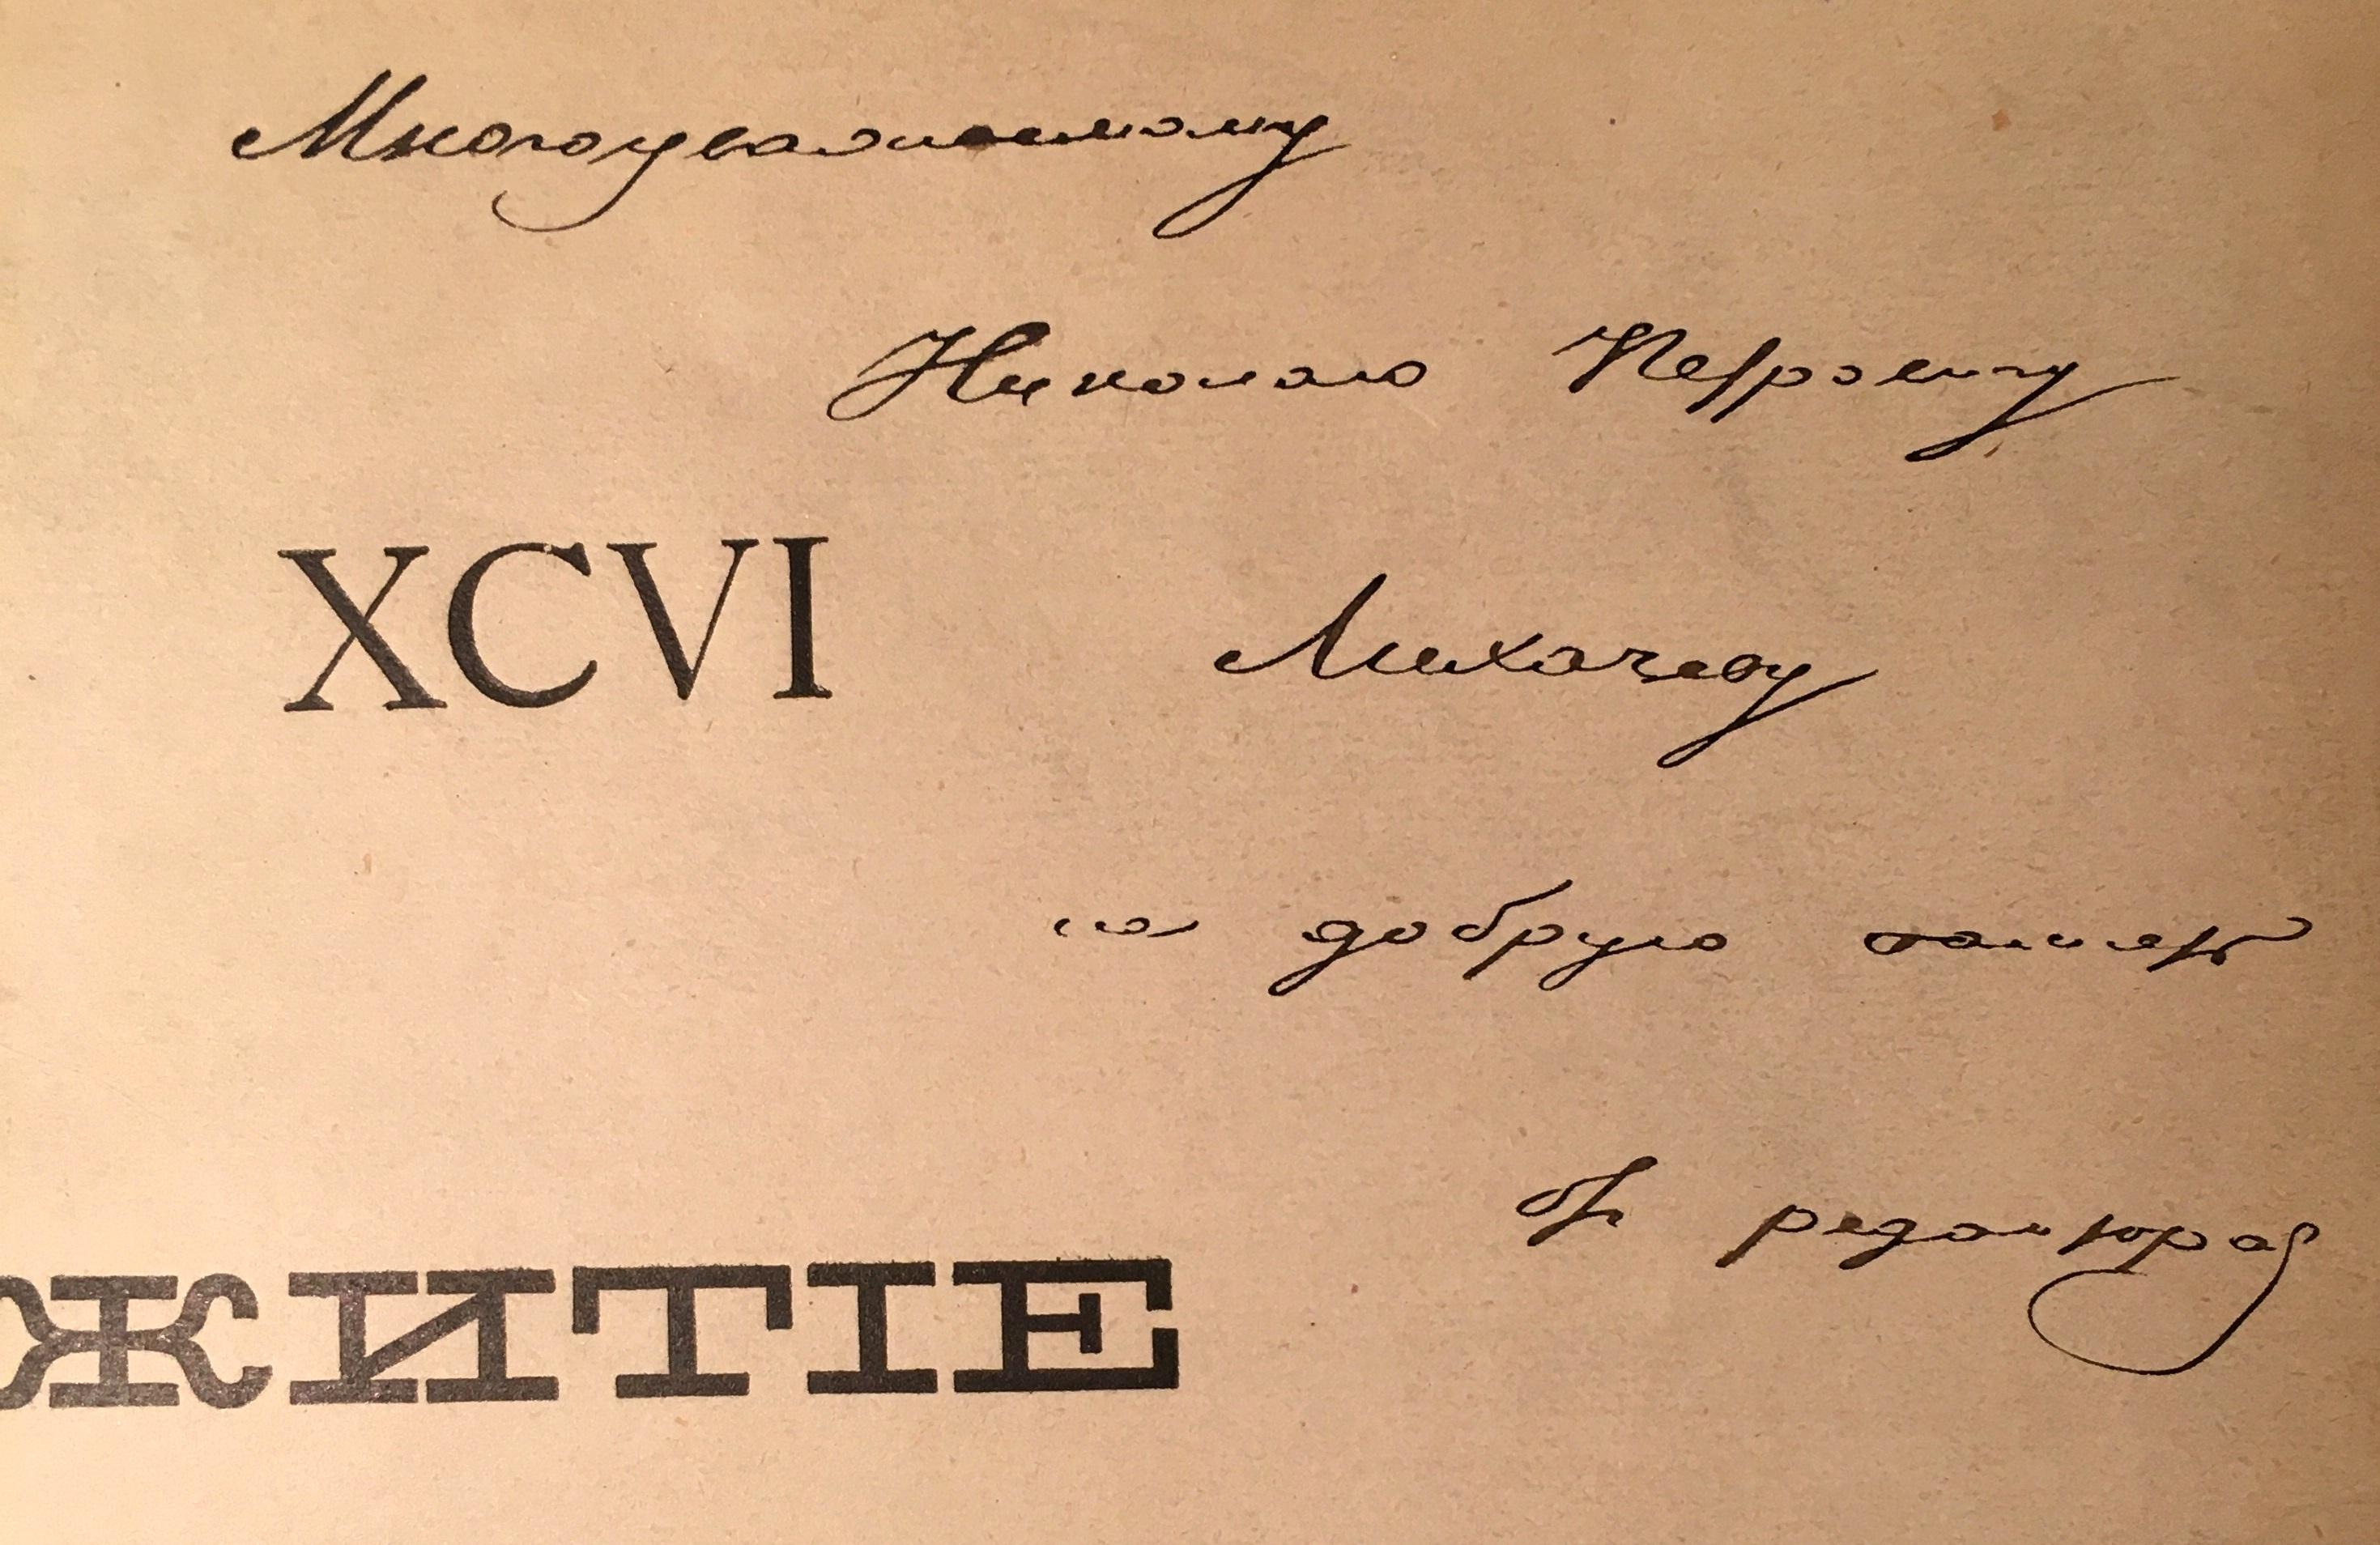 Многоуважаемому
Николаю Петровичу
XCVI
Лихачеву
на добрую память
отъ редактора
ЖИТІЕ